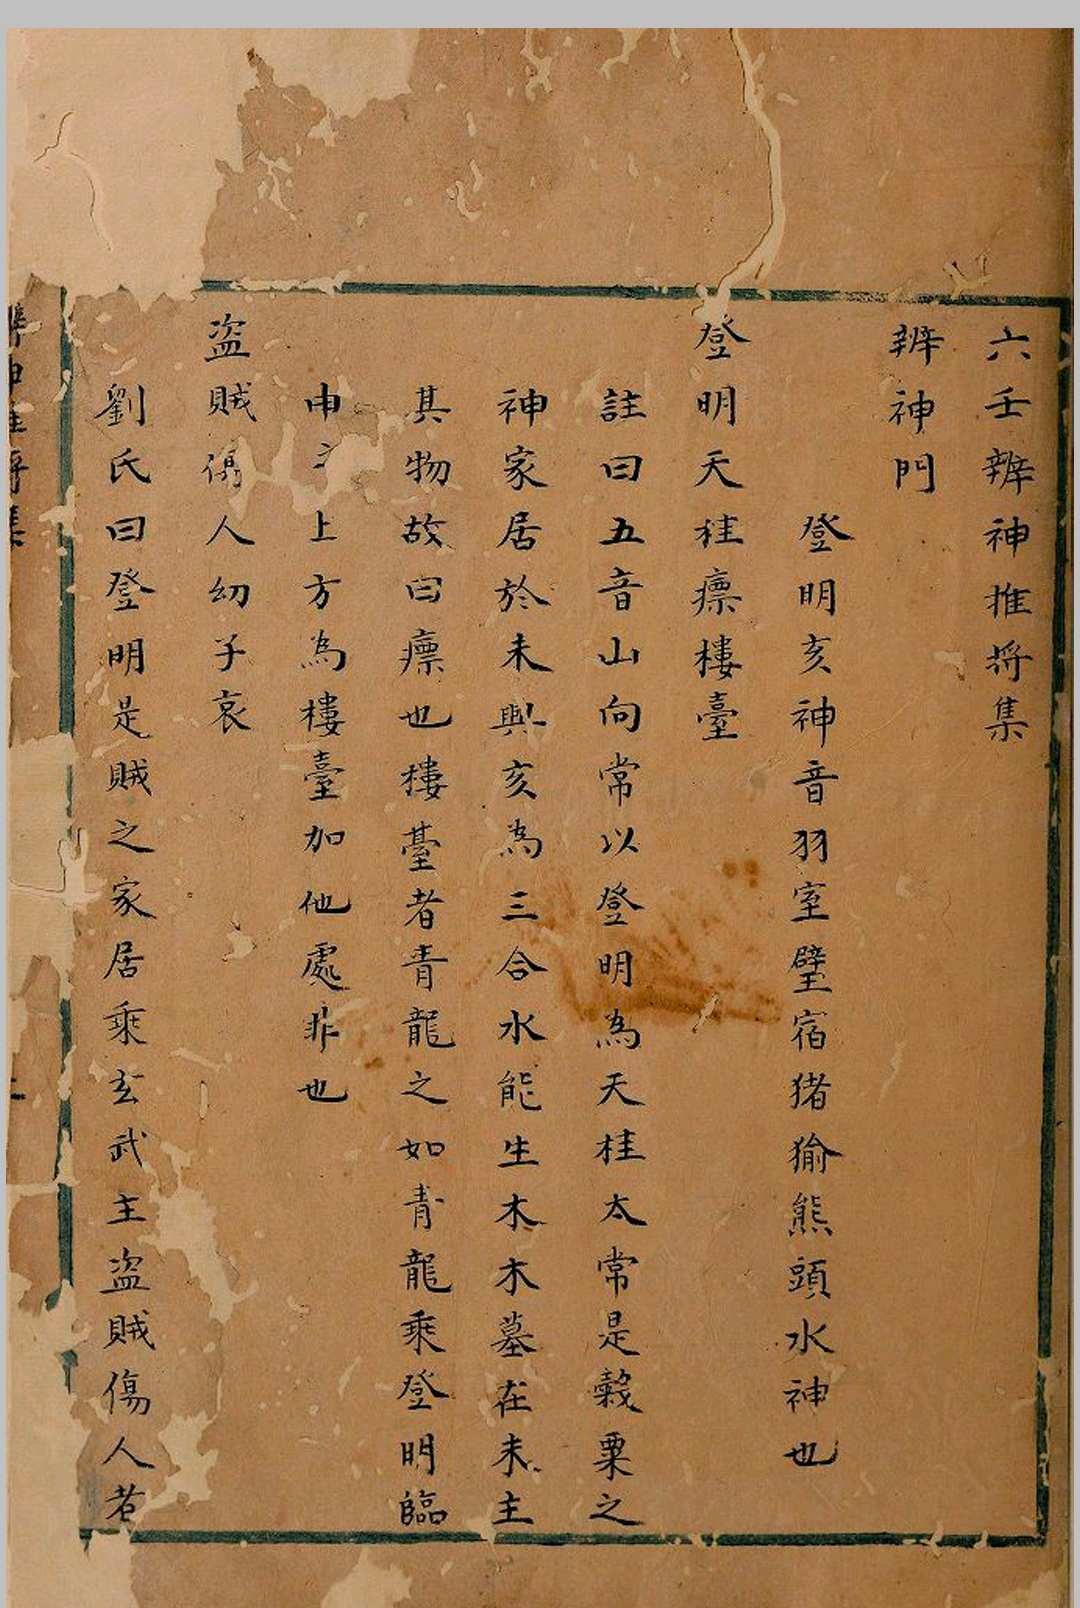 六壬辨神推將集
辨神門
登明亥神音羽室壁宿猪㺄熊頭水神也
登明天桂㾾樓臺
註曰五音山向常以登明為天桂太常是穀粟之
神家居於未與亥為三合水能生木木墓在未主
其物故曰㾾也樓臺者青龍之如青龍乘登明臨
申之上方為樓臺加他處非也
盜賊傷人幼子哀
劉氏曰登明是賊之家居乘玄武主盜賊傷人若